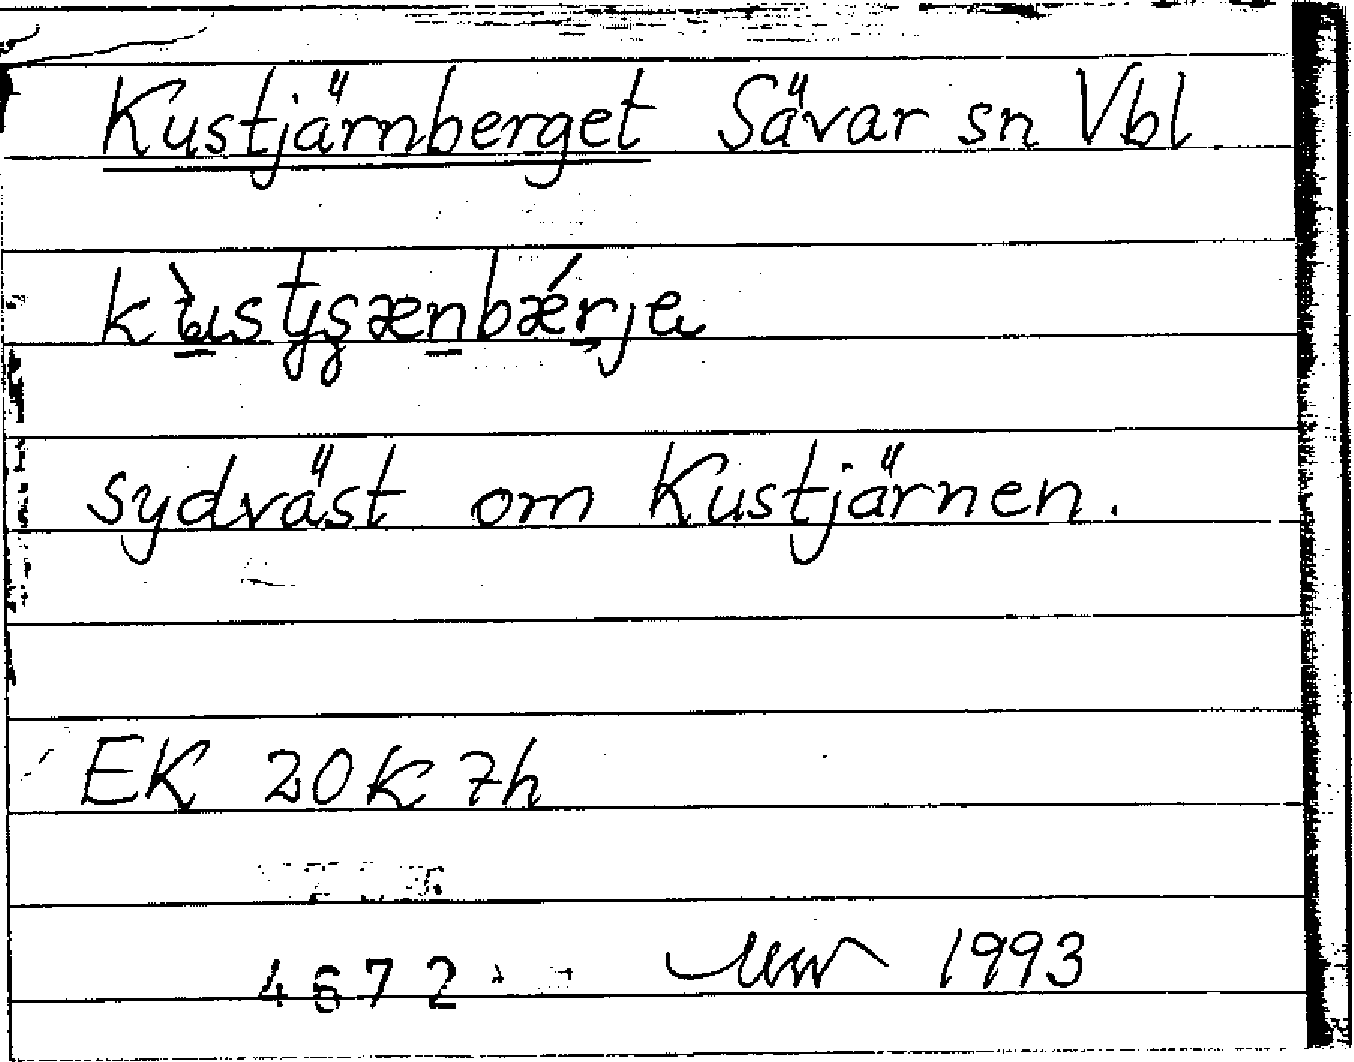 Kustjärnberget Sävar sn Vbl
sydväst om Kustjärnen.
EK 20K 7h
4672 1993